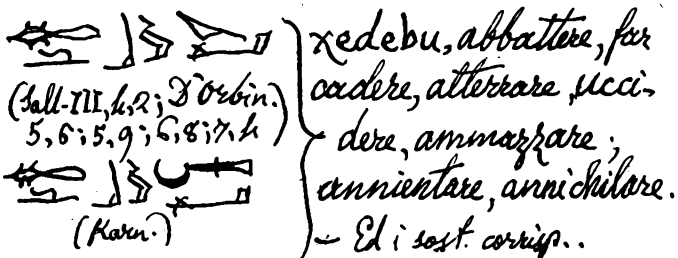 (Sall-III, 4, 2; D'Orbin.
5, 6; 5, 9; 6, 8; 7, 4)
(Karn.)
χedebu, abbattere, far
cadere, atterrare, ucci-
dere, ammazzare;
annientare, annichilare.
– Ed i sost. corrisp..